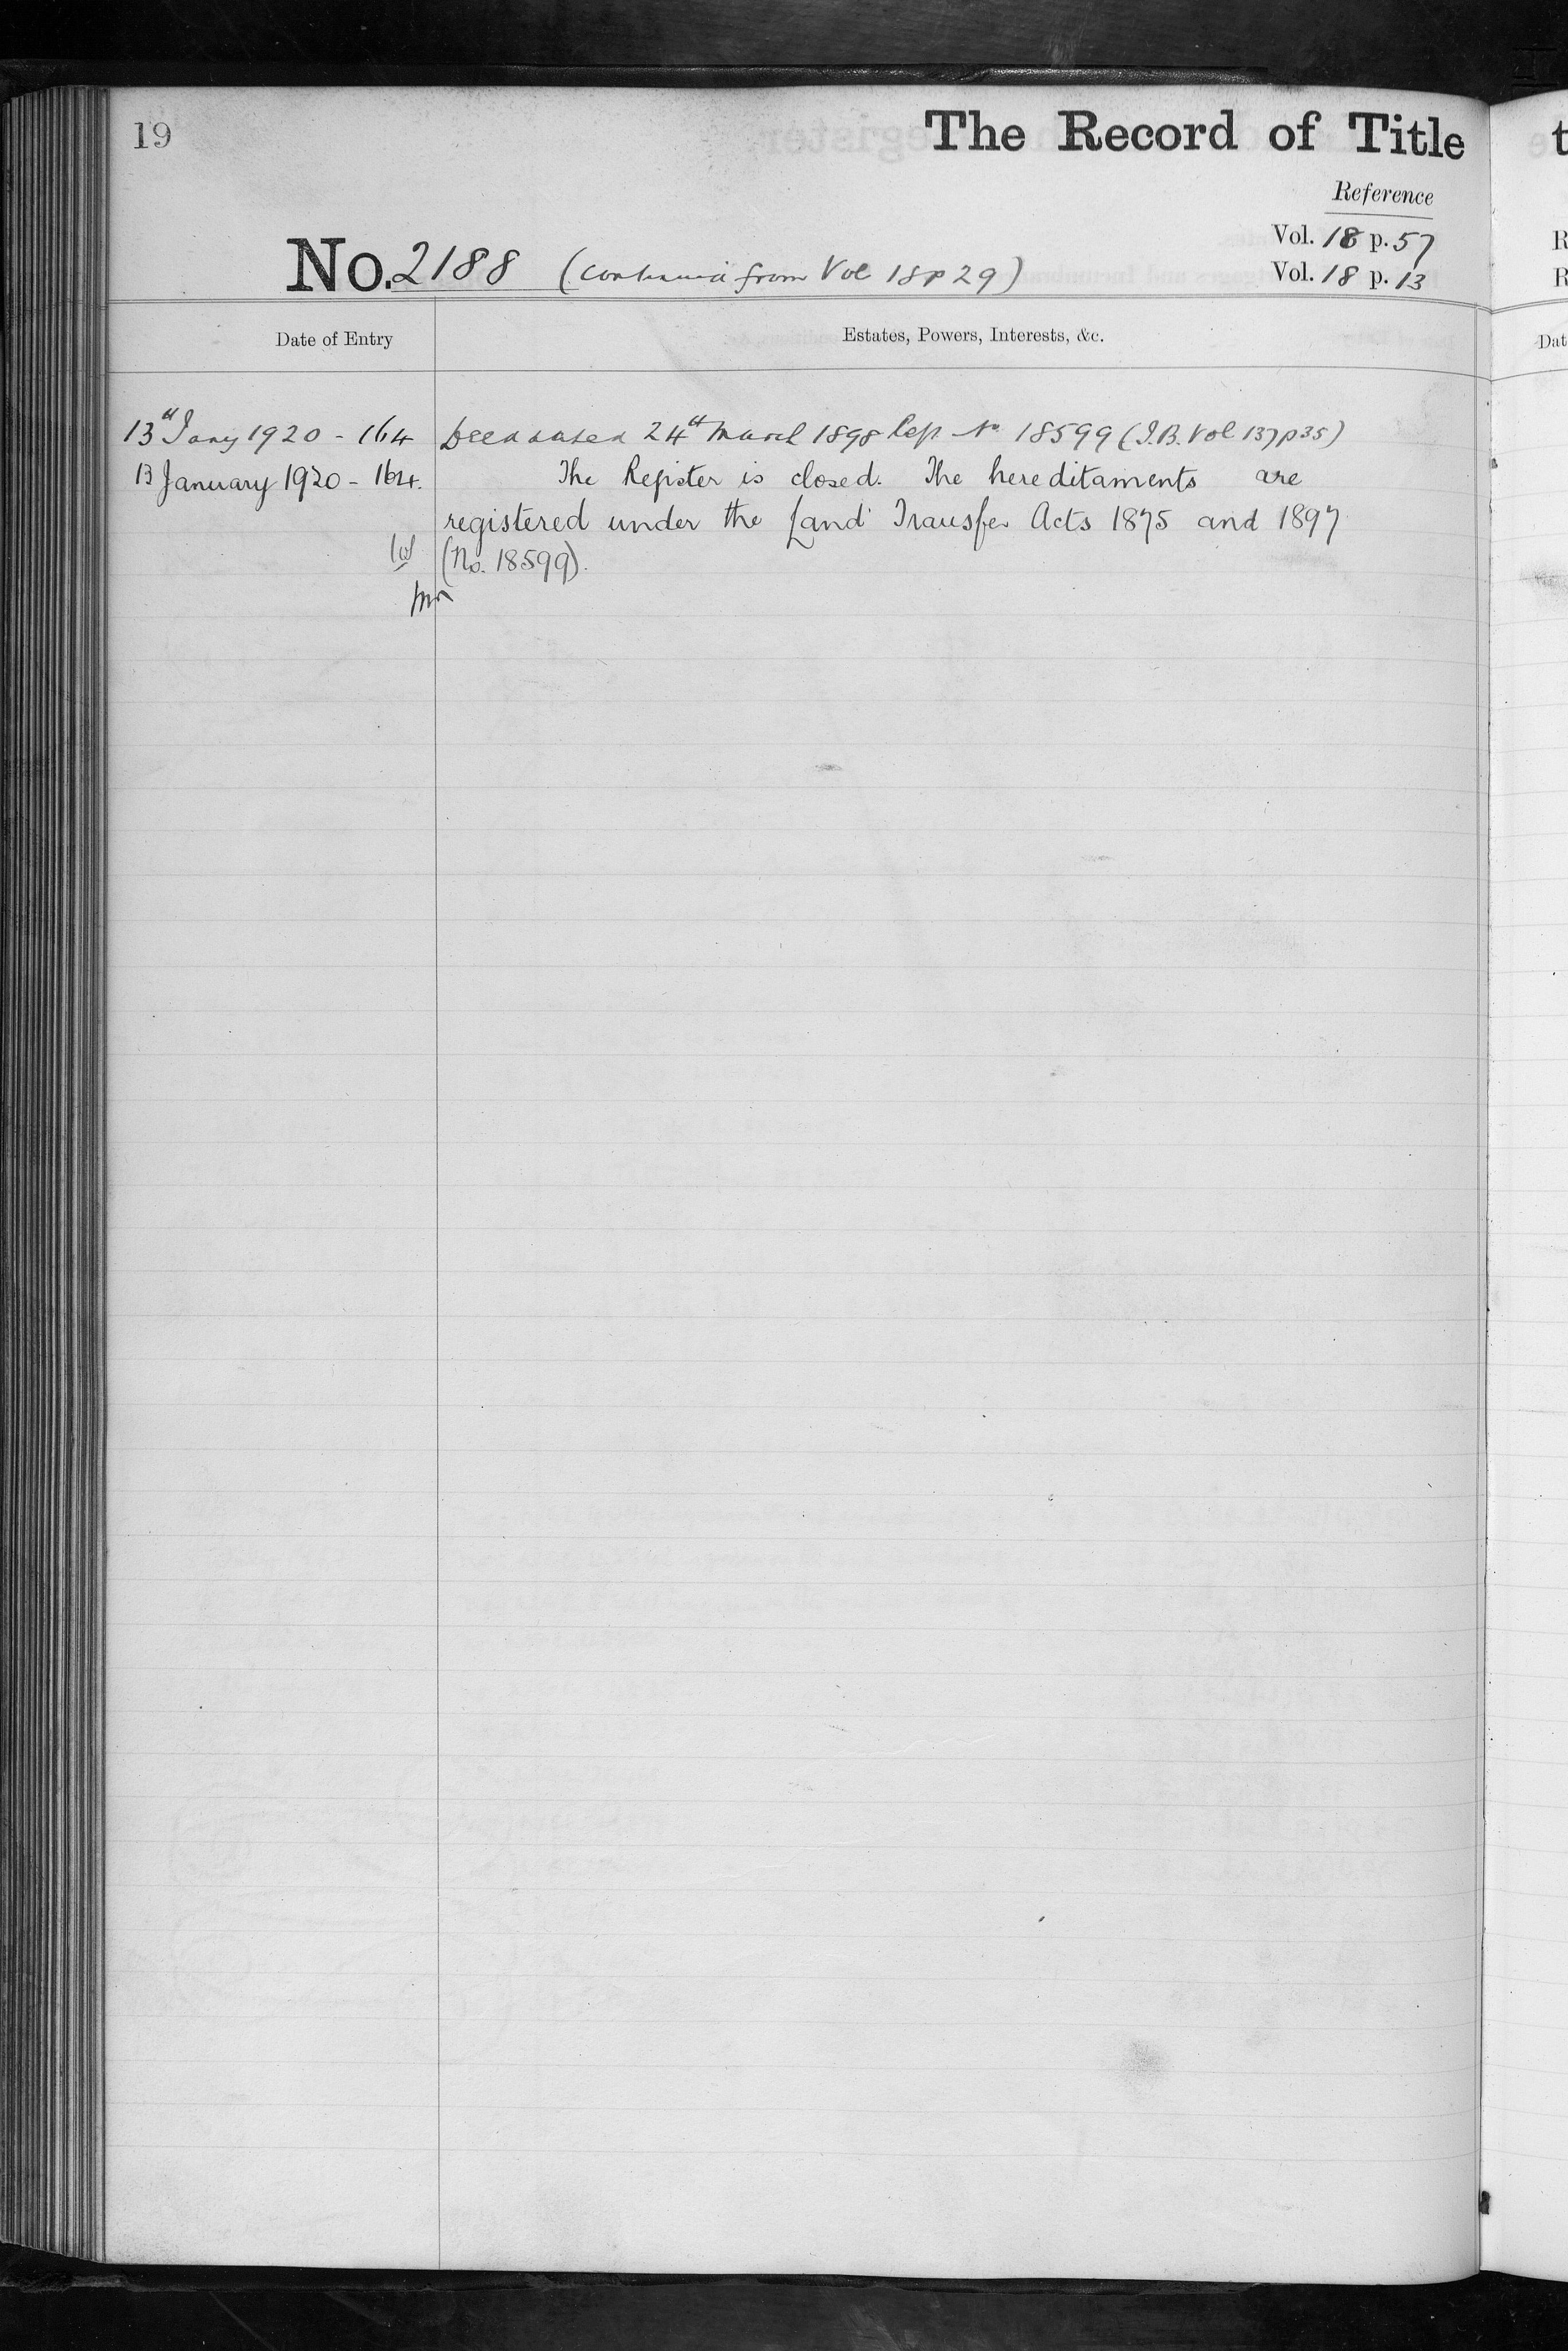 19
The Record of Title
Reference
Vol. 18 p. 57
No. 2188 (continued from Vol 18 p 29)
Vol. 18 p. 13
Date of Entry
Estates, Powers, Interests, &c.
13th Jany 1920 - 164 Deed dated 24th March 1898 Rep No 18599 (I.B. Vol 137 p 35)
13 January 1920 - 164. The Register is closed. The hereditaments are
registered under the Land Transfer Acts 1875 and 1897
(No. 18599).